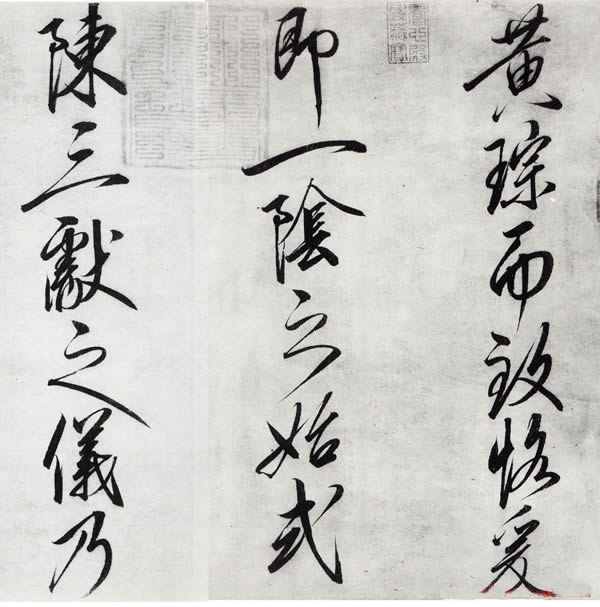 黄琮而致恪爰
即一陰之始式
陳三獻之儀乃